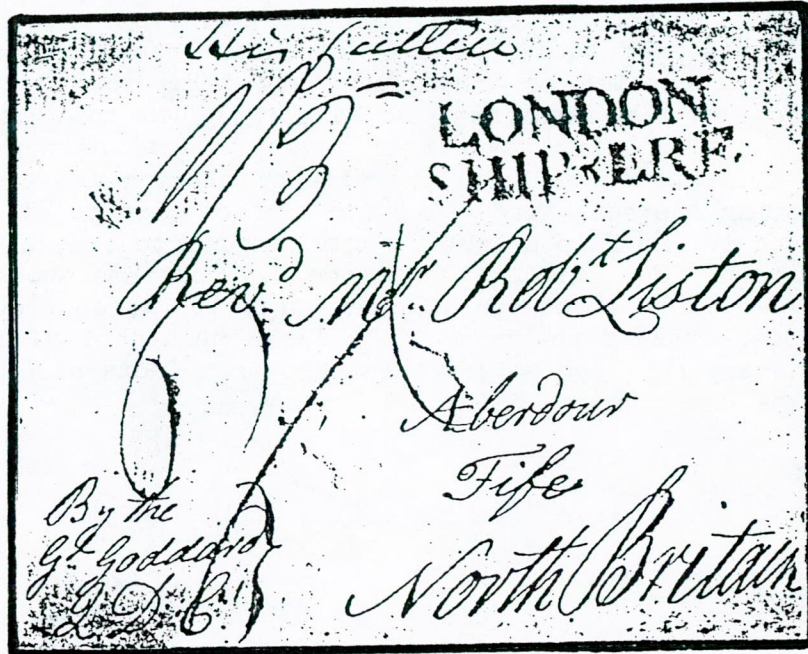 LONDON
SHIP
Revd Mr. Robt Liston
Aberdour
Fife
North Britain
By the
Gl Goddard
Q D C